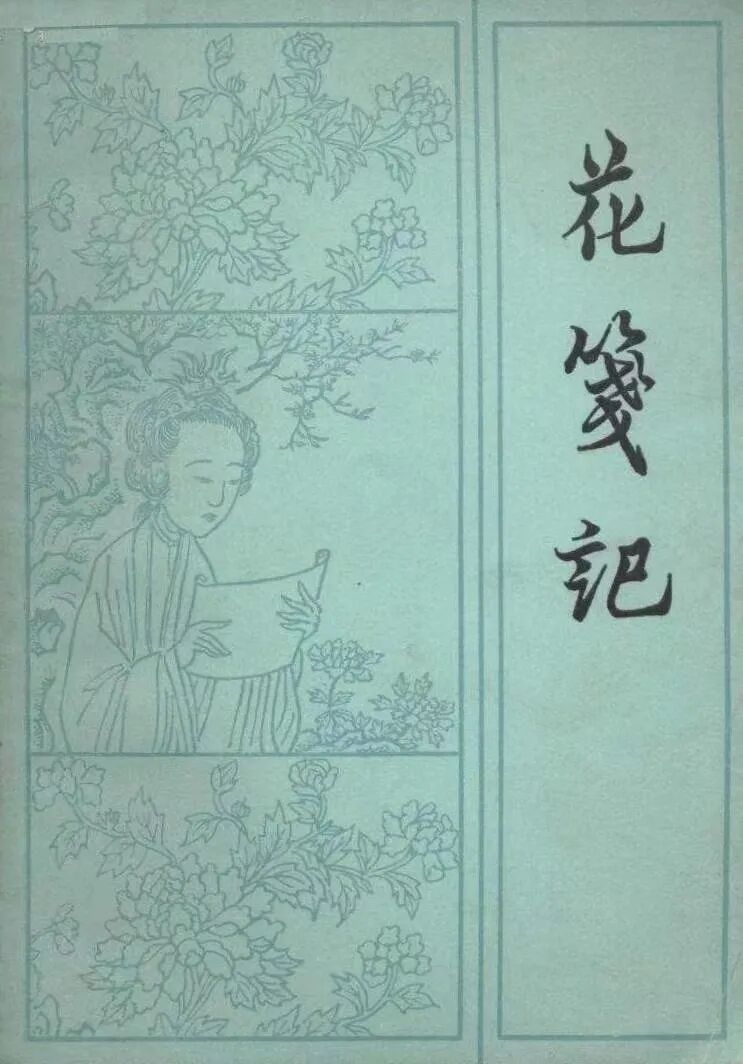 花箋記